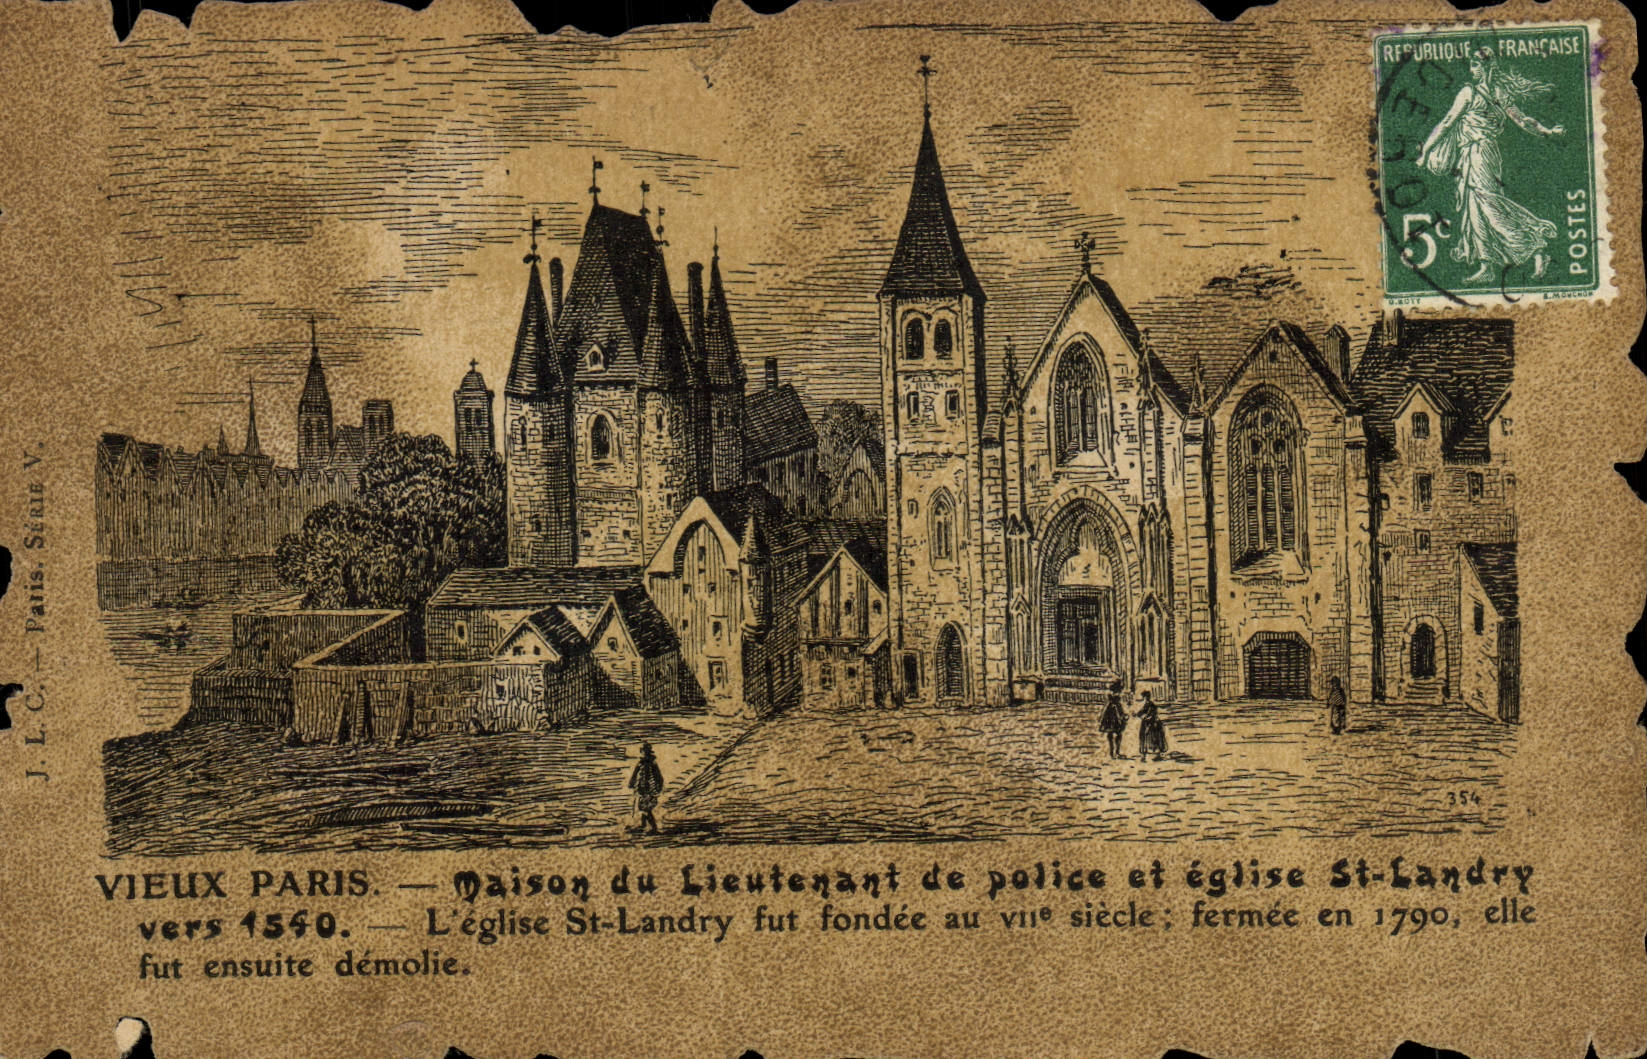 REPUBLIQUE FRANÇAISE
5c
POSTES
O. ROTY
E. MOUCHON
354
J. L. C. — Paris. SÉRIE V.
VIEUX PARIS. — Maison du Lieutenant de police et église St-Landry
vers 1540. — L'église St-Landry fut fondée au VIIe siècle ; fermée en 1790, elle
fut ensuite démolie.